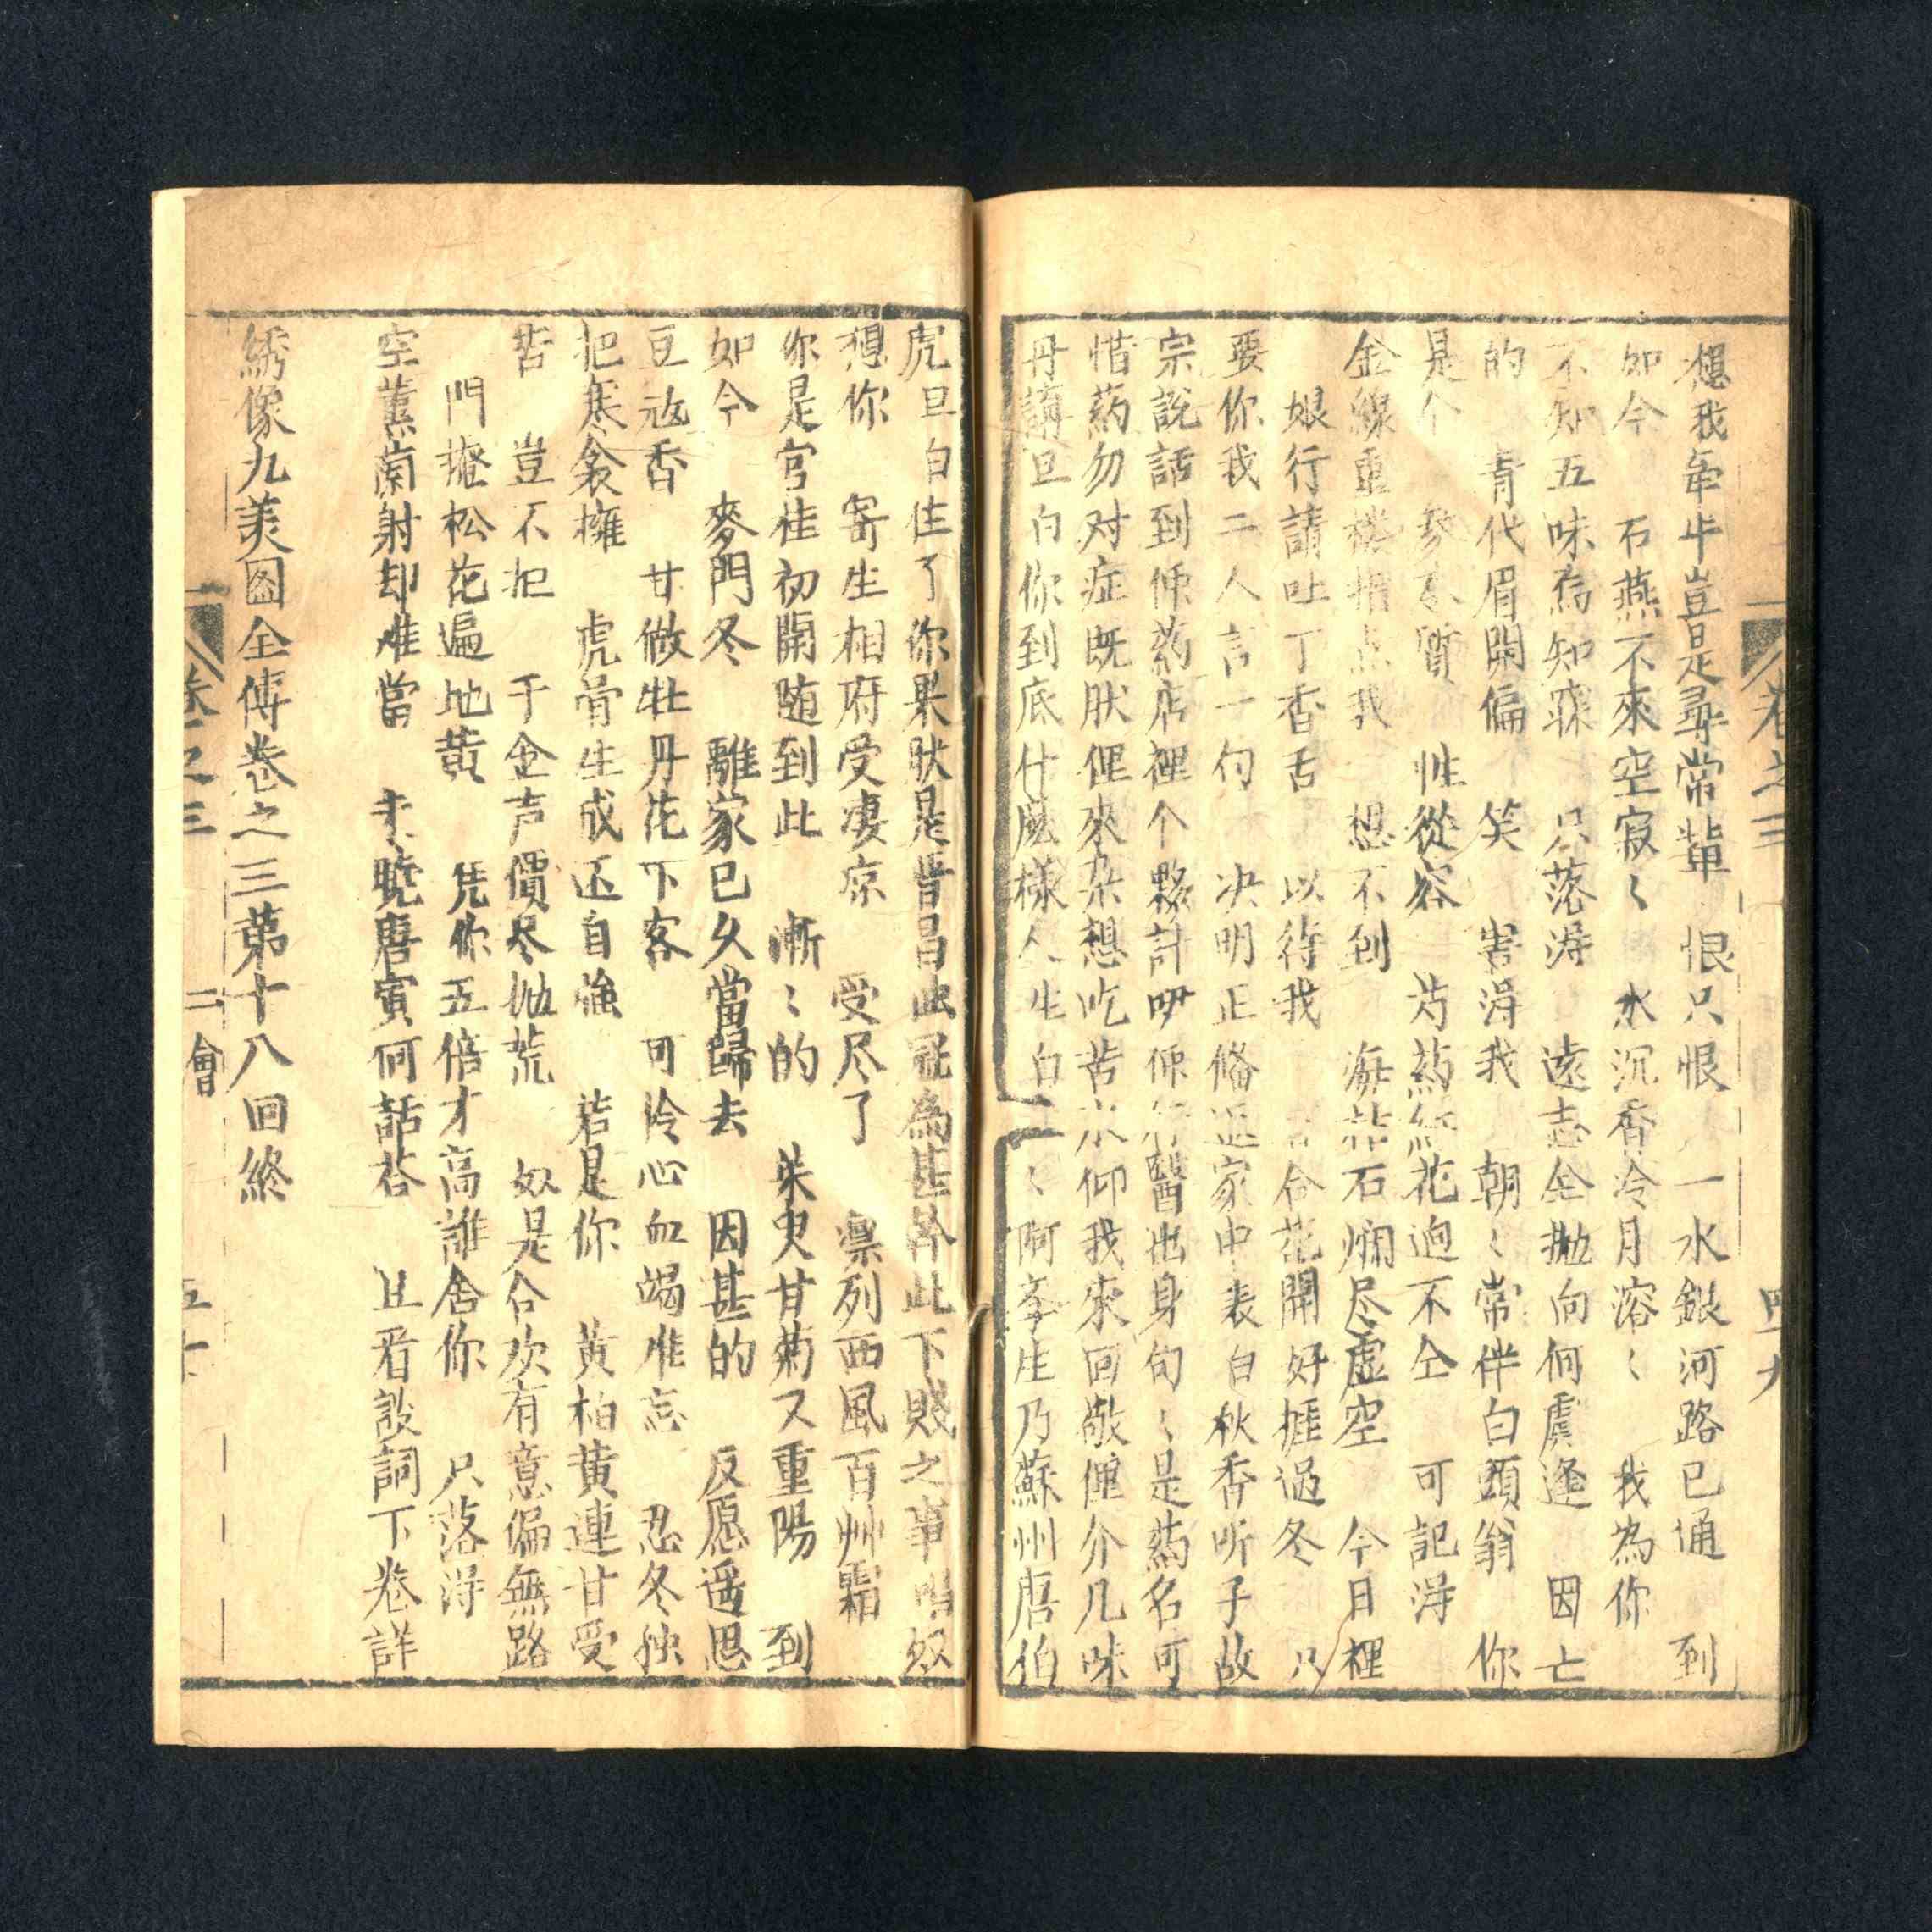 卷之三
四九
想我牽牛豈是尋常輩 恨只恨 一水銀河路已通 到
如今 石燕不來空寂〻 水沉香冷月溶〻 我為你
不知五味為知寐 只落淂 遠志全拋向何處逢 因亡
的 青代眉開偏 笑 害淂我 朝〻常伴白頭翁 你
是个 參 質 性從容 芍葯紅花逈不仝 可記淂
金線重樓指点我 想不到 海枯石爛尽虛空 今日裡
娘行請吐丁香舌 以待我 合花開好捱過冬 只
要你我二人言一句 决明正條返家中 表白秋香听子故
宗說話到係葯店裡个夥計 係行醫出身句〻是葯名可
惜葯勿对症既肰俚來 想吃苦水仰我來回敬俚介几味
丹 旦白你到底什麽樣人生白 〻阿 生乃蘇州唐伯
虎旦白住了你果肰是晋昌 為甚 此下賤之事唱奴
想你 寄生相府受凄凉 受尽了 凛列西風百艸霜
你是官桂初開随到此 漸〻的 茱萸甘菊又重陽 到
如今 麥門冬 離家已久當歸去 因甚的 反愿遥思
豆蔻香 甘做牡丹花下客 可怜心血竭难忘 忍冬独
把寒衾擁 虎骨生成还自強 若是你 黄柏黄連甘受
苦 豈不把 千金声價尽抛荒 奴是合欢有意偏無路
門掩松花遍地黄 凭你五倍才高誰舍你 只落淂
空薰蘭射却难當 未曉唐寅何話荅 且看談詞下卷詳
綉像九美图全傳卷之三第十八回終
卷之三
二會
五十